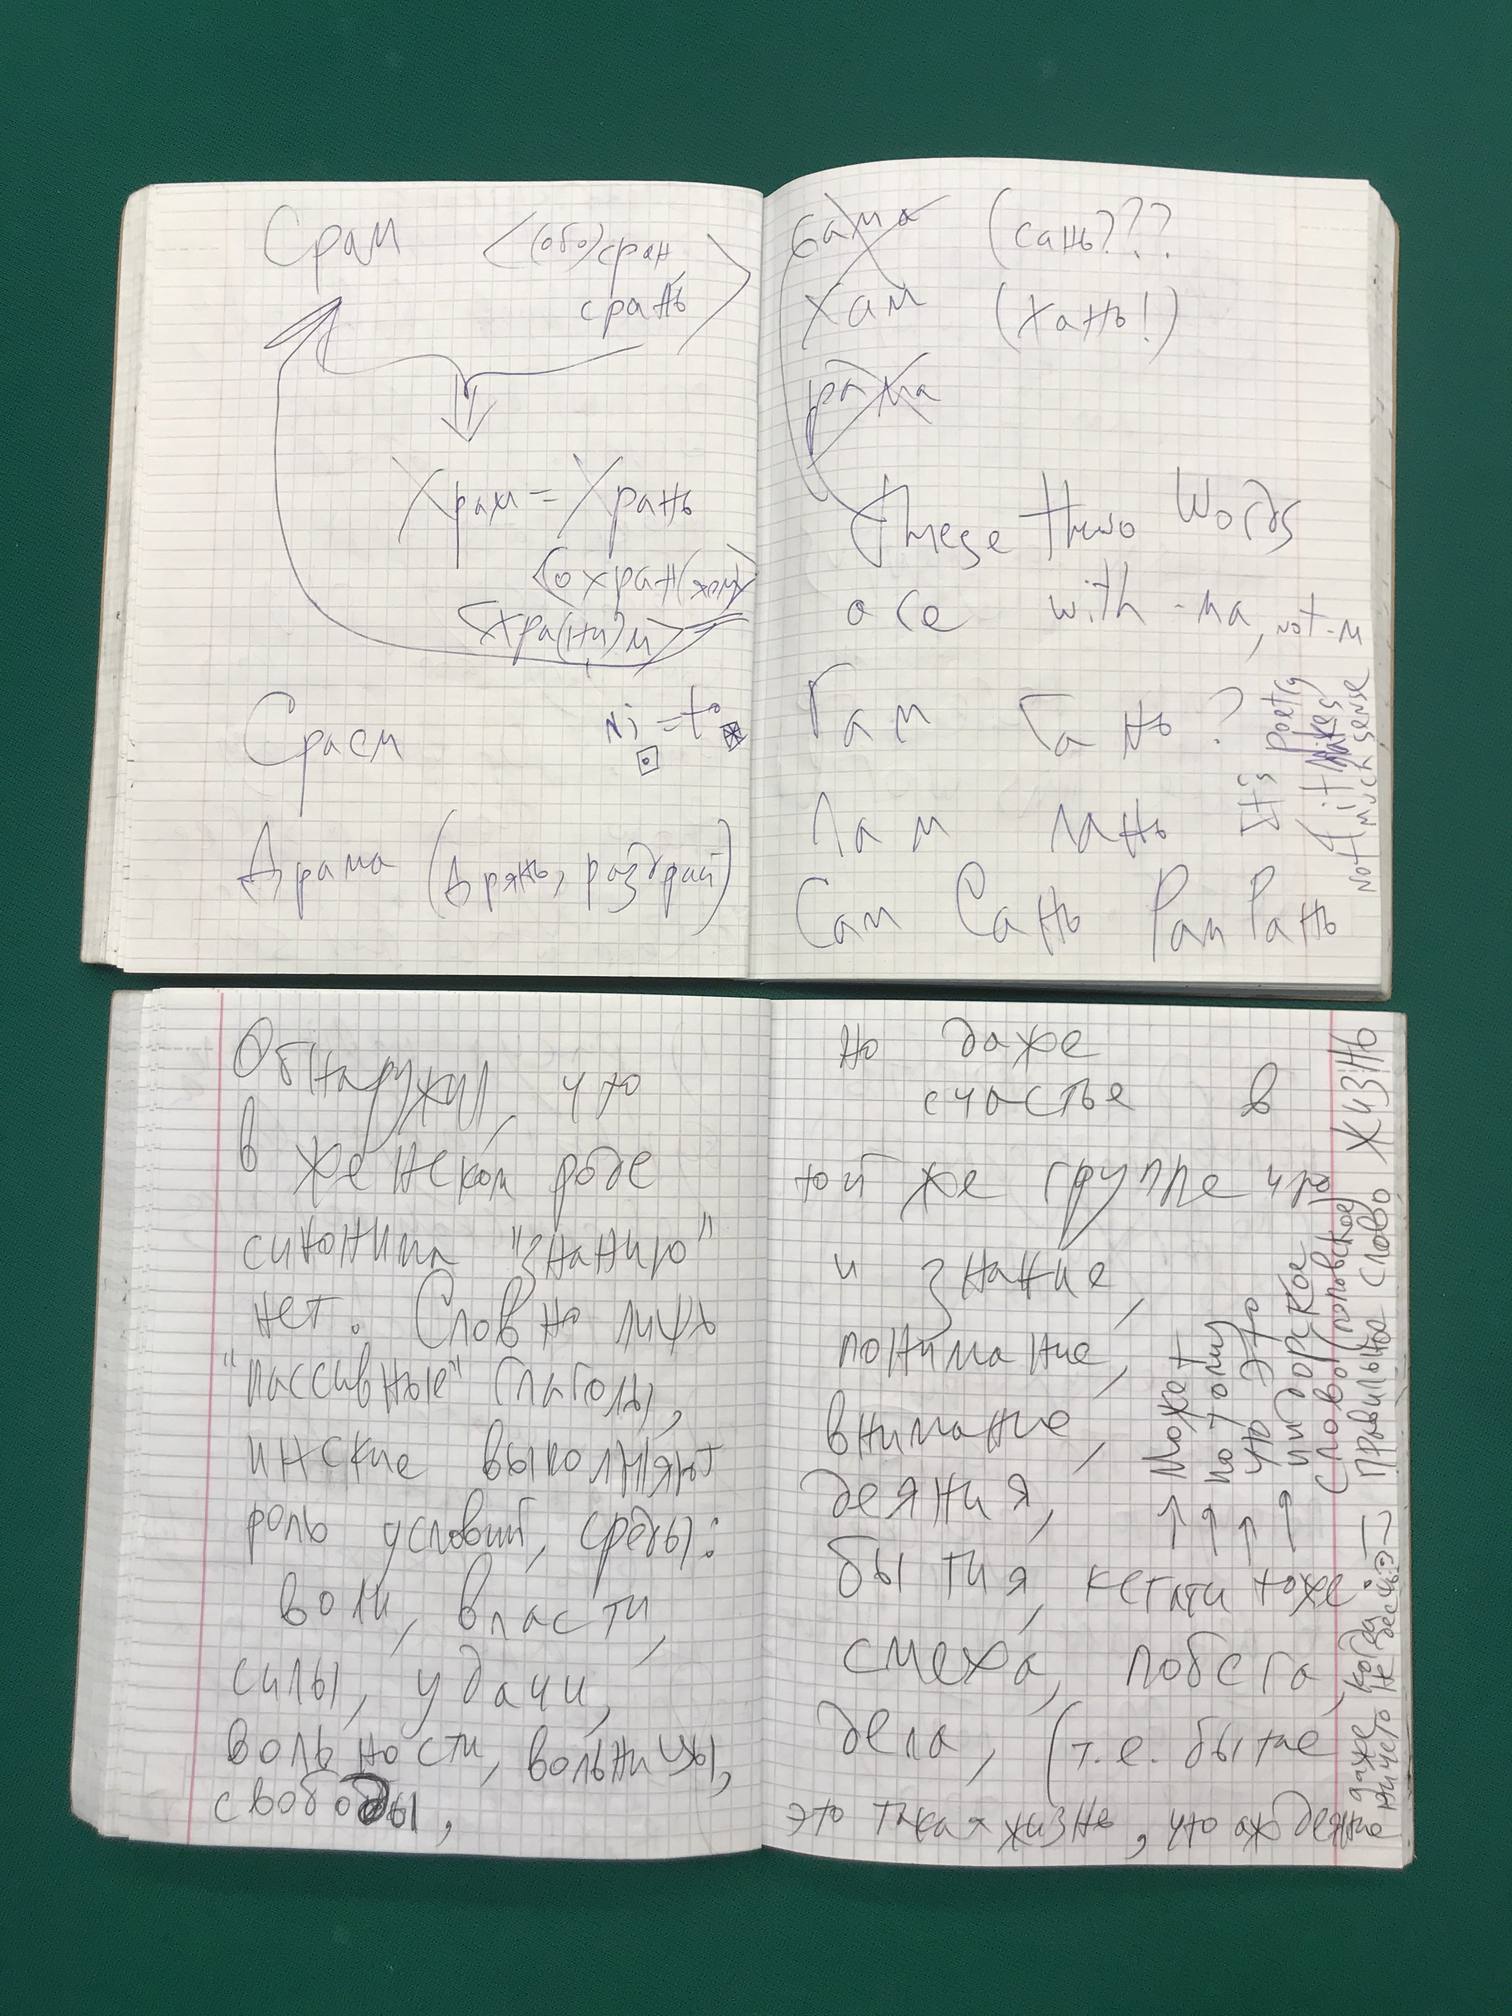 Срам <(обо)сран,
срань>
Храм = Хрань
<охран(яюм)>
<хра(ни)м>
Ni = to
Сраем
Драма (Дрянь, раздрай)
сама (сань???
хам (хань!)
рама
these thwo words
are with -ма, not -м
Гам Гань?
Лам лань
Сам Сань Рам Рань
It's poetry
it makes
not much sense
Обнаружил, что
в женском роде
синонима "знанию"
нет. Словно лишь
"пассивные" глаголы,
инские выполняют
роль условий, среды:
воли, власти,
силы, удачи,
вольности, вольницы,
свободы,
но даже
счастье в
той же группе что
и знание,
понимание,
внимание,
деяния,
бытия, кстати тоже
смеха, побега,
дела, (т.е. бытие
это такая жизнь, что аж деяние
даже когда
ничего не делаешь
Может
потому
что это
пидорское
слово (поповское)
Правильное слово ЖИЗНЬ